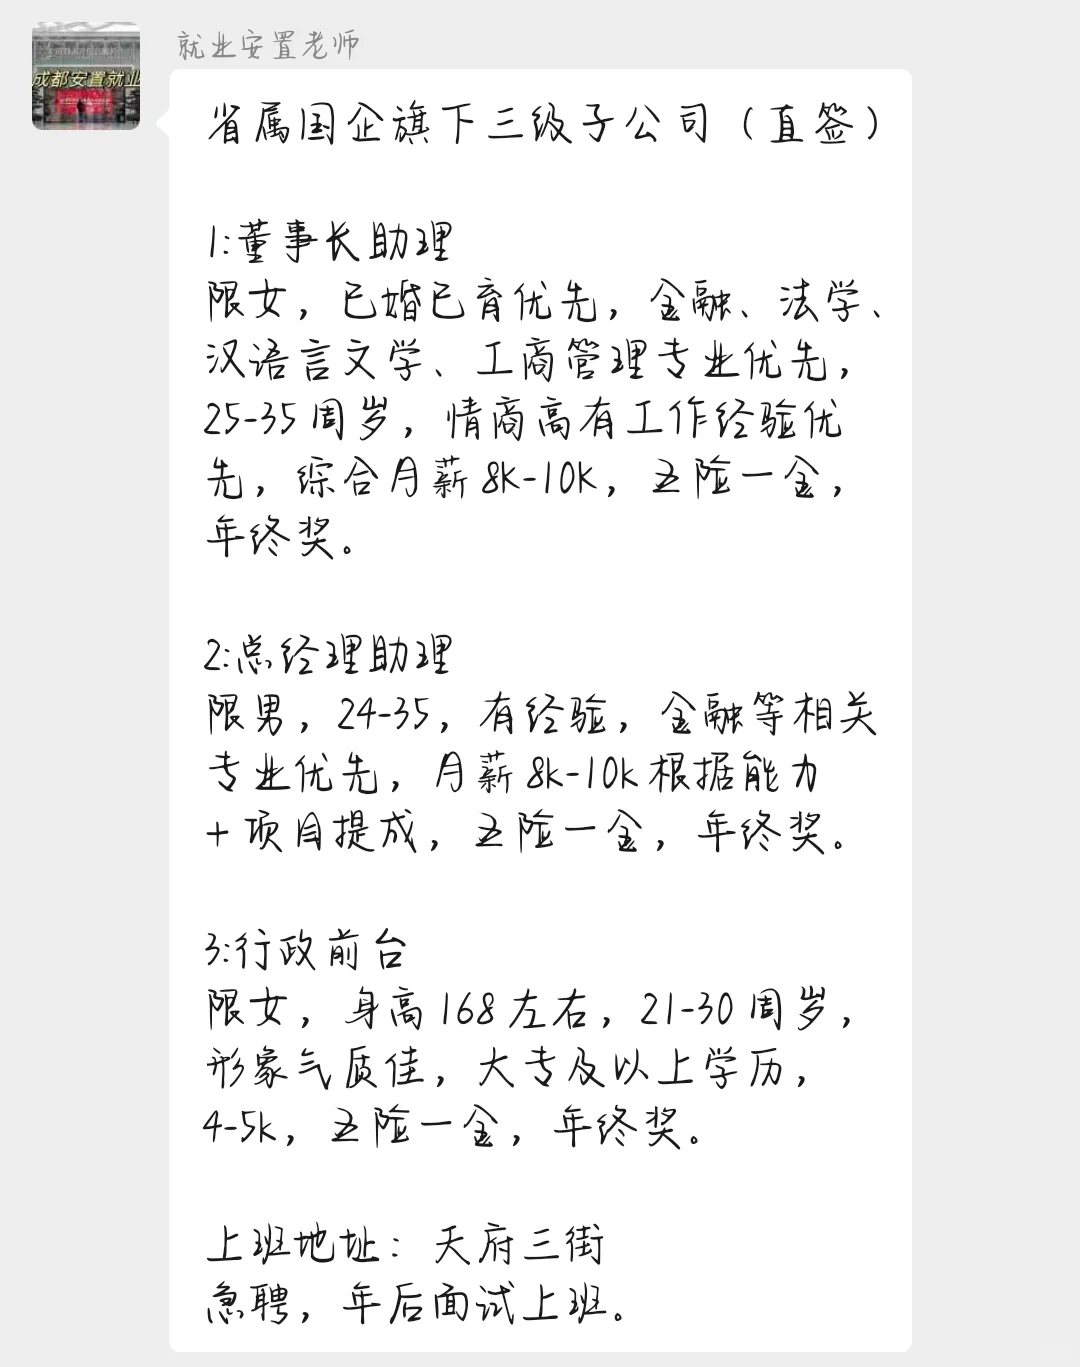 就业安置老师
成都安置就业
省属国企旗下三级子公司（直签）
1:董事长助理
限女，已婚已育优先，金融、法学、
汉语言文学、工商管理专业优先，
25-35周岁，情商高有工作经验优
先，综合月薪8K-10K，五险一金，
年终奖。
2:总经理助理
限男，24-35，有经验，金融等相关
专业优先，月薪8k-10k根据能力
+项目提成，五险一金，年终奖。
3:行政前台
限女，身高168左右，21-30周岁，
形象气质佳，大专及以上学历，
4-5k，五险一金，年终奖。
上班地址：天府三街
急聘，年后面试上班。